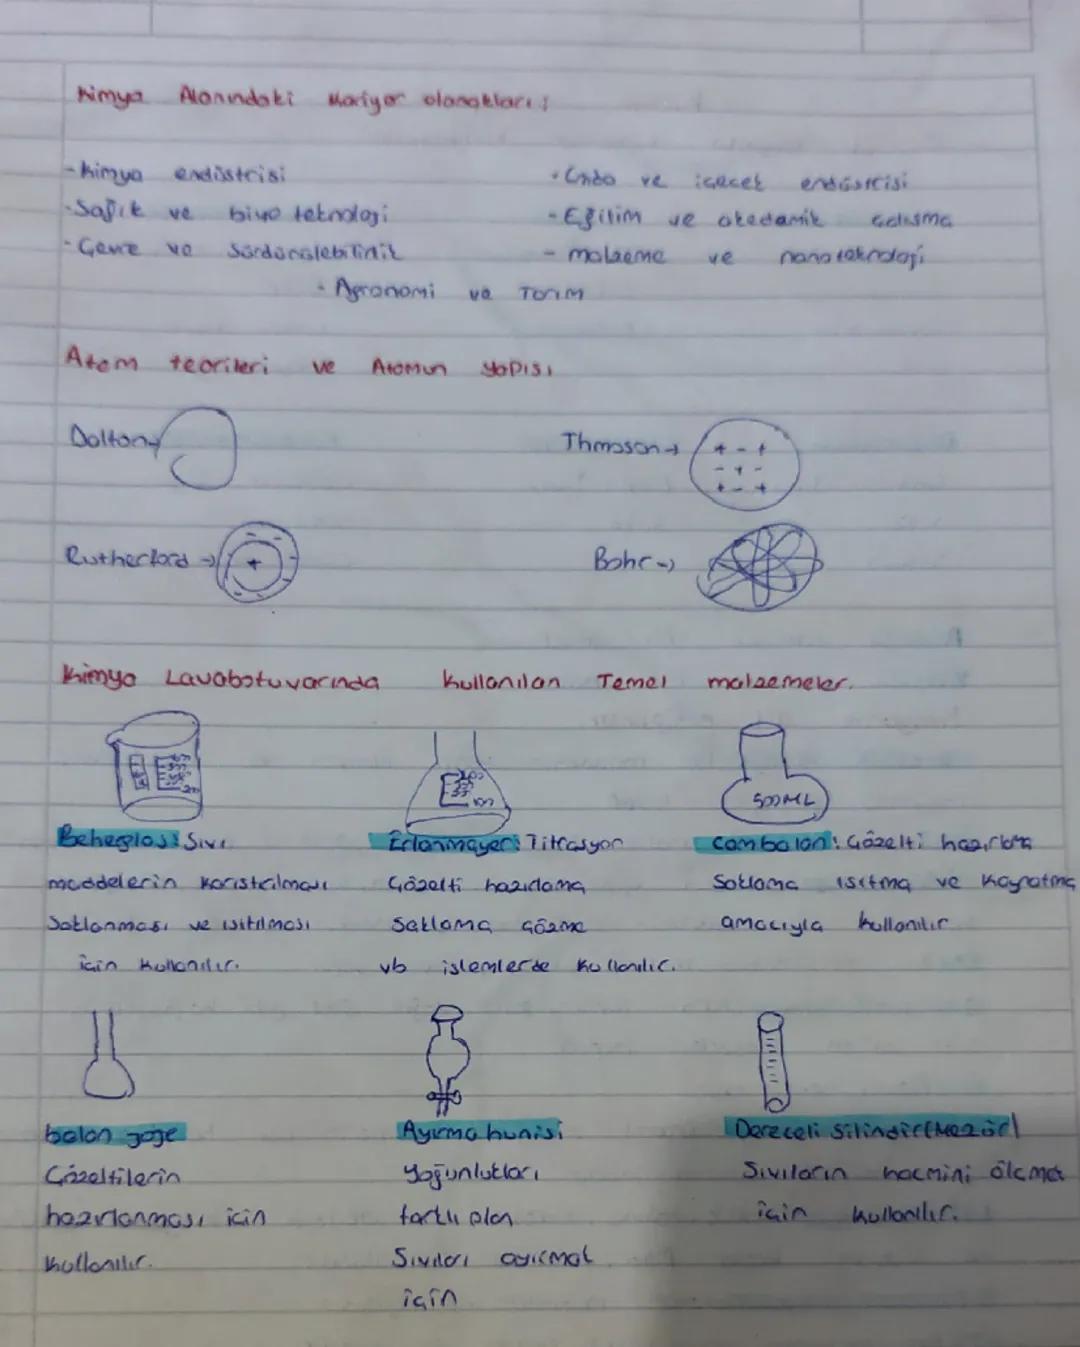 Kimya Alanındaki Kariyer olanakları:
-Kimya endüstrisi
-Gıda ve içecek endüstrisi
-Sağlık ve biyo teknoloji
-Eğitim ve akedamik çalışma
-Çevre ve Sürdürülebilirlik
-malzeme ve nanoteknoloji
-Agronomi ve Tarım
Atom teorileri ve Atomun yapısı
Dalton→
Thmoson→
+ - +
- + -
+ - +
Rutherford→
+
Bohr→
Kimya Lavabotuvarında kullanılan Temel malzemeler.
500ML
Beherglas: Sıvı
maddelerin karıştırılması
Saklanması ve ısıtılması
için kullanılır.
Erlanmayer: Titrasyon
Çözelti hazırlama
Saklama çözme
vb işlemlerde kullanılır.
Cam balon: Çözelti hazırlama
Saklama ısıtma ve Kaynatma
amacıyla kullanılır
balon joje
Çözeltilerin
hazırlanması için
kullanılır.
Ayırma hunisi
Yoğunlukları
farklı olan
Sıvıları ayırmak
için
Dereceli Silindir(Mezür)
Sıvıların hacmini ölçmek
için kullanılır.